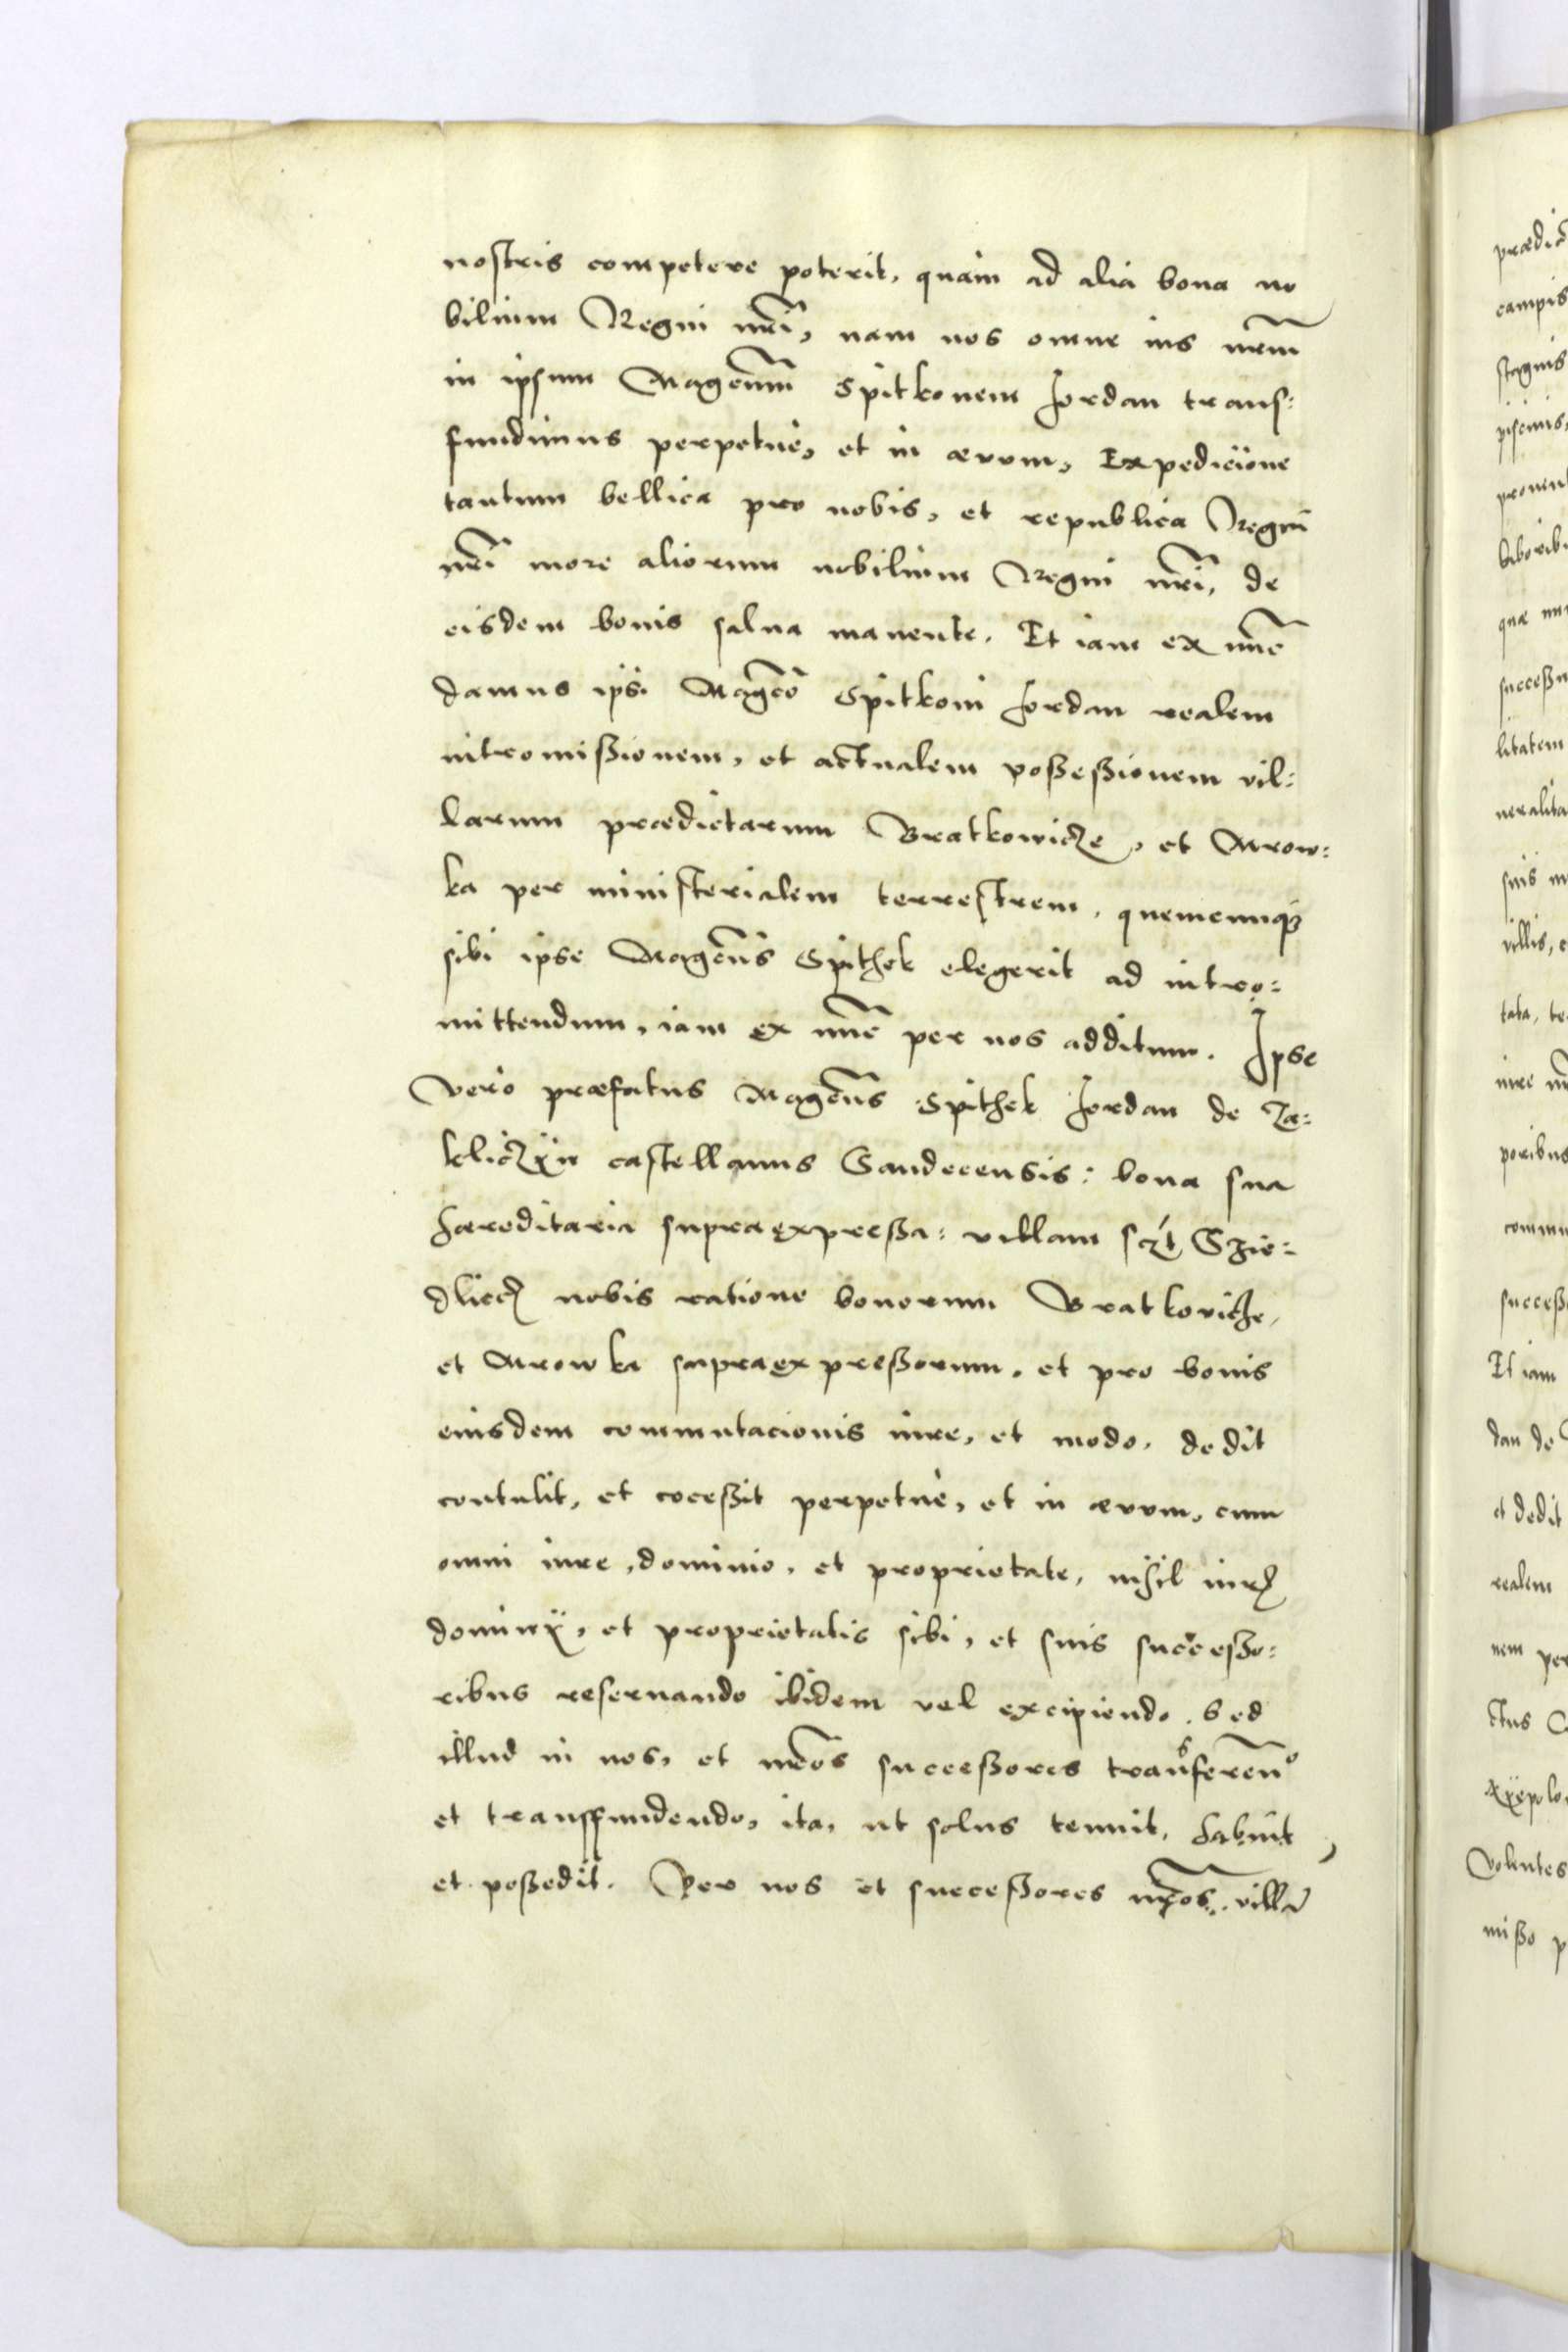 nostris competere poterit, quàm ad alia bona no
bilium Regni nr̃i, nam nos omne ius nr̃um
in ipsum Magcum̃ Spitkonem Jordan trans:
fundimus perpetuè, et in ævum, Expedicione
tantum bellica pro nobis, et republica Regni
nr̃i more aliorum nobilium Regni nr̃i, de
eisdem bonis salua manente. Et iam ex nũc
damus ipsi Magc̃o Spitkoni Jordan realem
intromißionem, et actualem poßeßionem vil:
larum prædictarum Bratkowicze, et Mrow:
ka per ministerialem terrestrem, quemcunq3
sibi ipse Magcũs Spithek elegerit ad intro:
mittendum, iam ex nũc per nos additum. Ipse
verò præfatus Magcũs Spithek Jordan de Za:
kliczÿn castellanus Sandecensis: bona sua
hæreditaria supraexpreßa: villam sczt Szie:
dliecz nobis ratione bonorum Bratkovicze,
et Mrowka supraexpreßorum, et pro bonis
eiusdem commutacionis iure, et modo, dedit
contulit, et coceßit perpetuè, et in ævum, cum
omni iure, dominio, et proprietate, nihil iur̃
dominÿ, et proprietatis sibi, et suis succeßo:
ribus reseruando ibidem vel excipiendo. Sed
illud in nos, et nr̃os succeßores transferen̄o
et transfundendo, ita, ut solus tenuit, habuit,
et poßedit. Per nos et succeßores nr̃os villã
prædic
campis
stagnis
piscinis,
prouent
laborib
quæ nu
succeßu
litatem
neralita
suis
villis,
tata, te
iure
poribus
commu
succeß
Et iam
dan de
et dedit
realem
nem per
ctus
volentes
mißo p